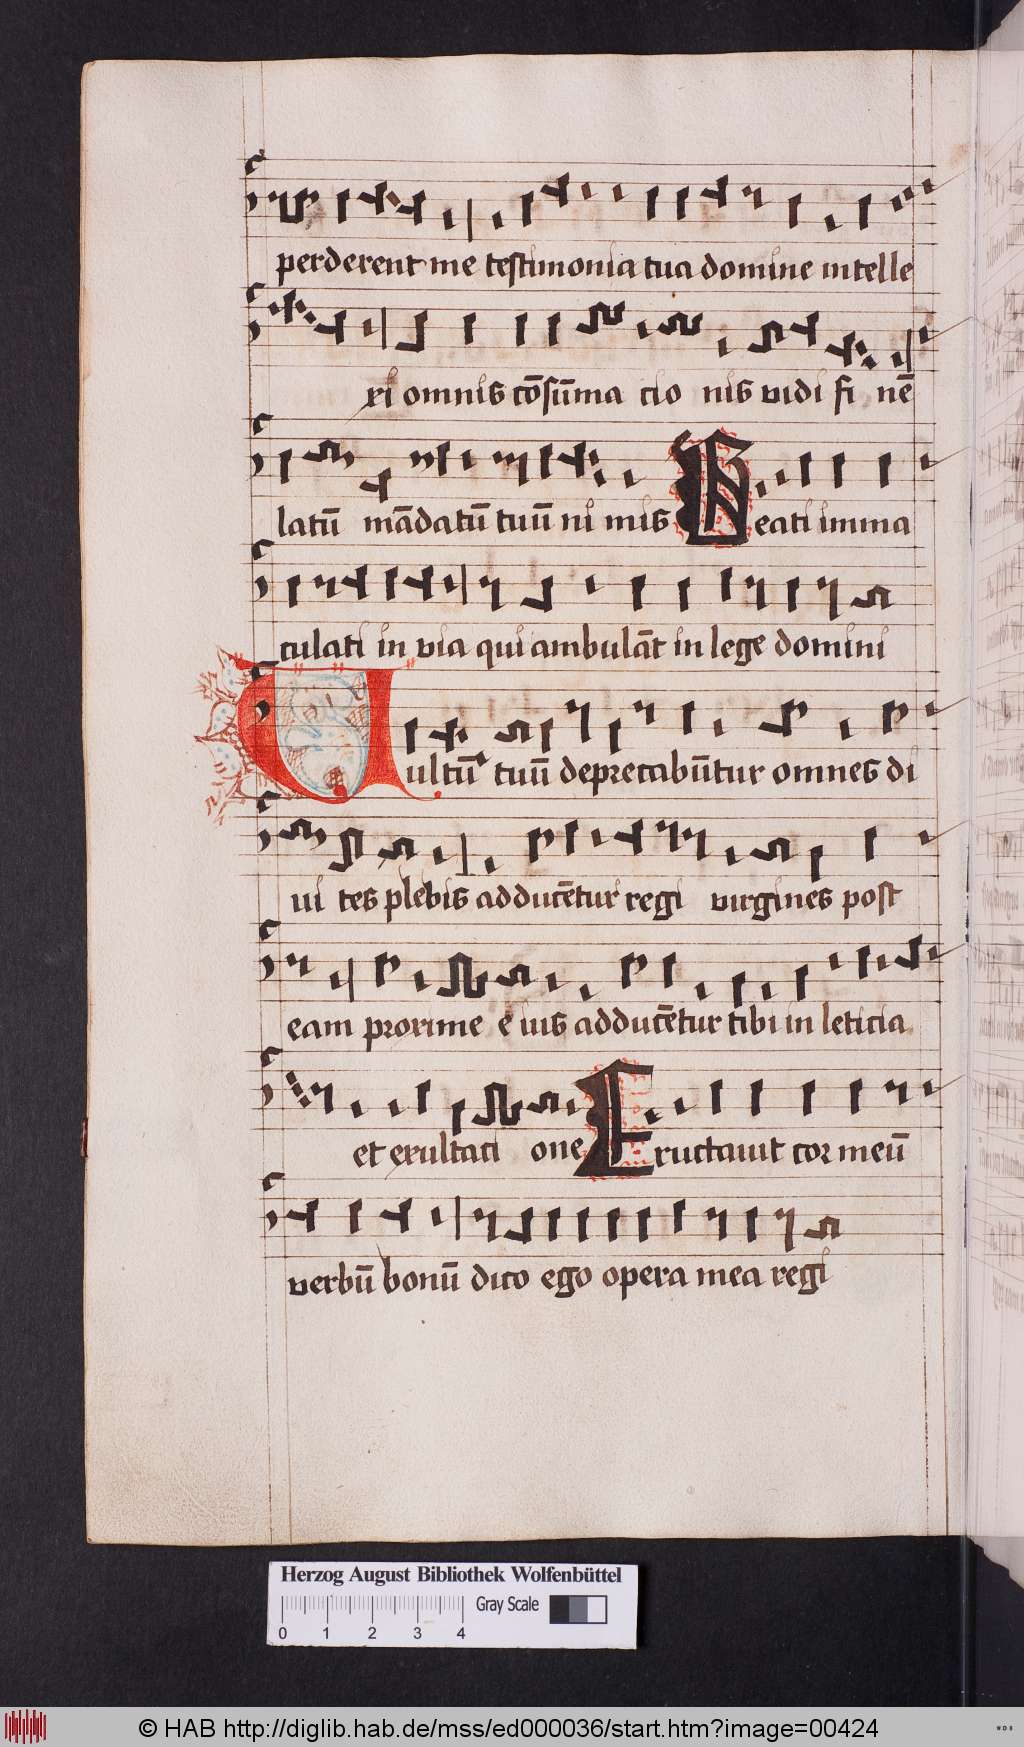 perderent me testimonia tua domine intelle
xi omnis cōsūma cio nis vidi fi nē
latū mādatū tuū ni mis Beati imma
culati in via qui ambulāt in lege domini
Vultū tuū deprecabūtur omnes di
ui tes plebis adducētur regi virgines post
eam proxime e ius adducētur tibi in leticia
et exultaci one Eructauit cor meū
verbū bonū dico ego opera mea regi
Herzog August Bibliothek Wolfenbüttel
Gray Scale
0 1 2 3 4
© HAB http://diglib.hab.de/mss/ed000036/start.htm?image=00424